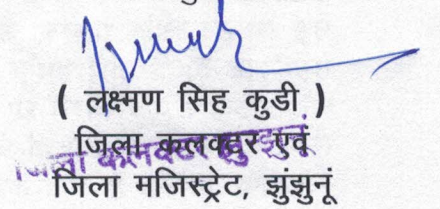 ( लक्ष्मण सिह कुडी )
जिला कलक्टर एवं
जिला कलक्टर झुंझुनूं
जिला मजिस्ट्रेट, झुंझुनूं